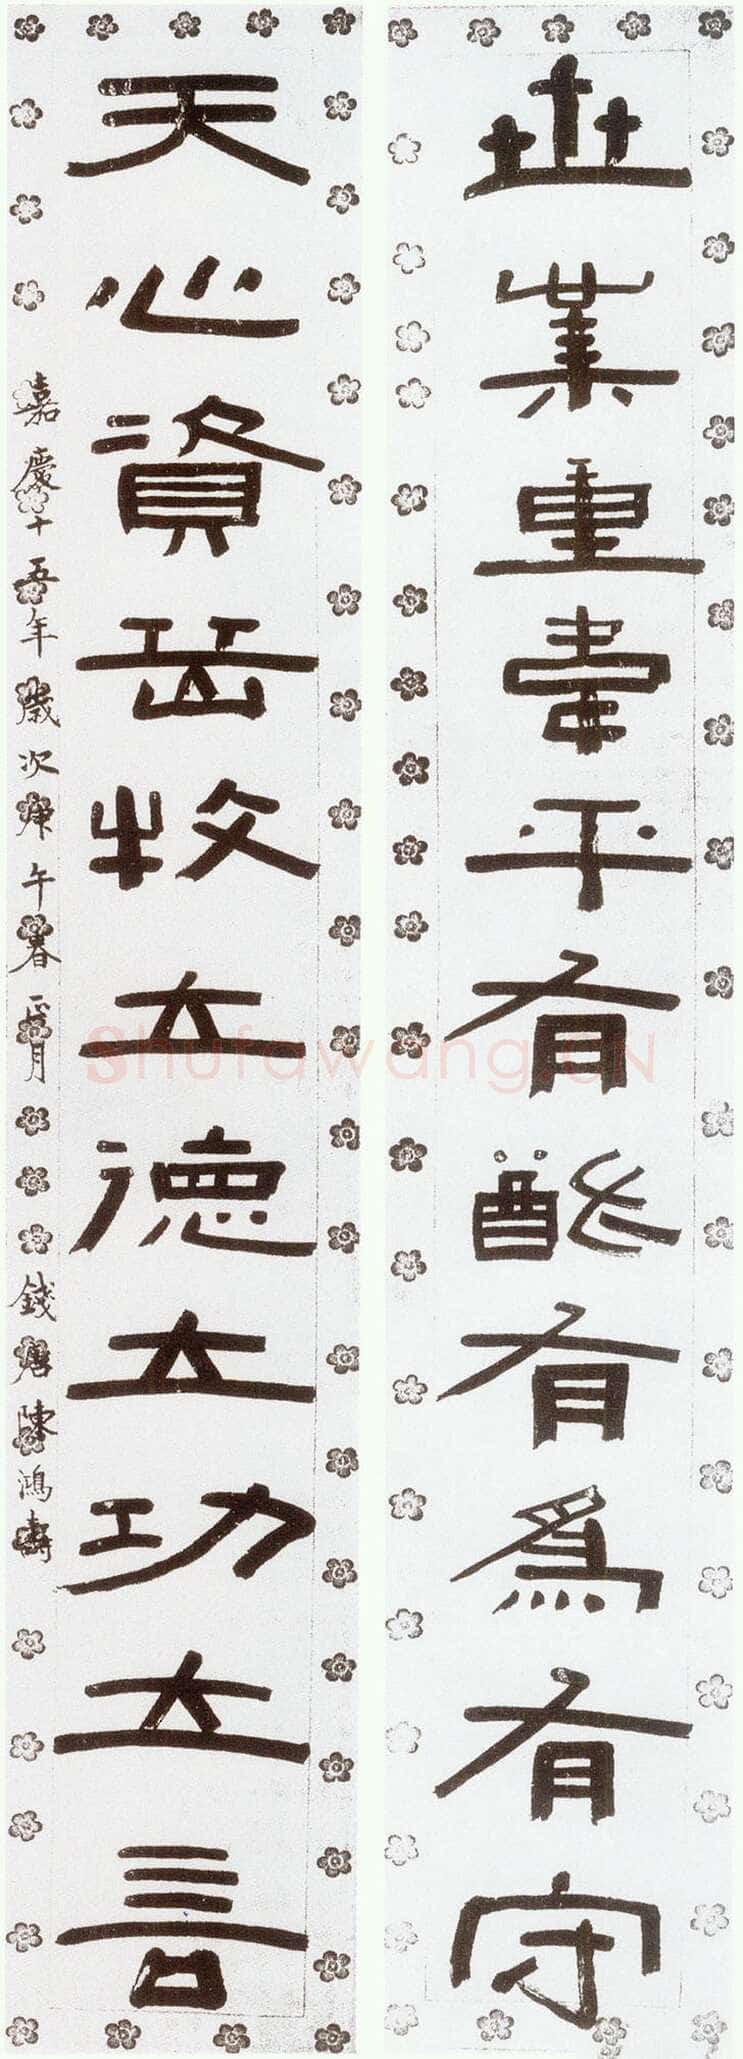 世業重韋平有猷有為有守
天心資岳牧立德立功立言
嘉慶十五年歲次庚午春正月
錢唐陳鴻壽
Shufawang.CN